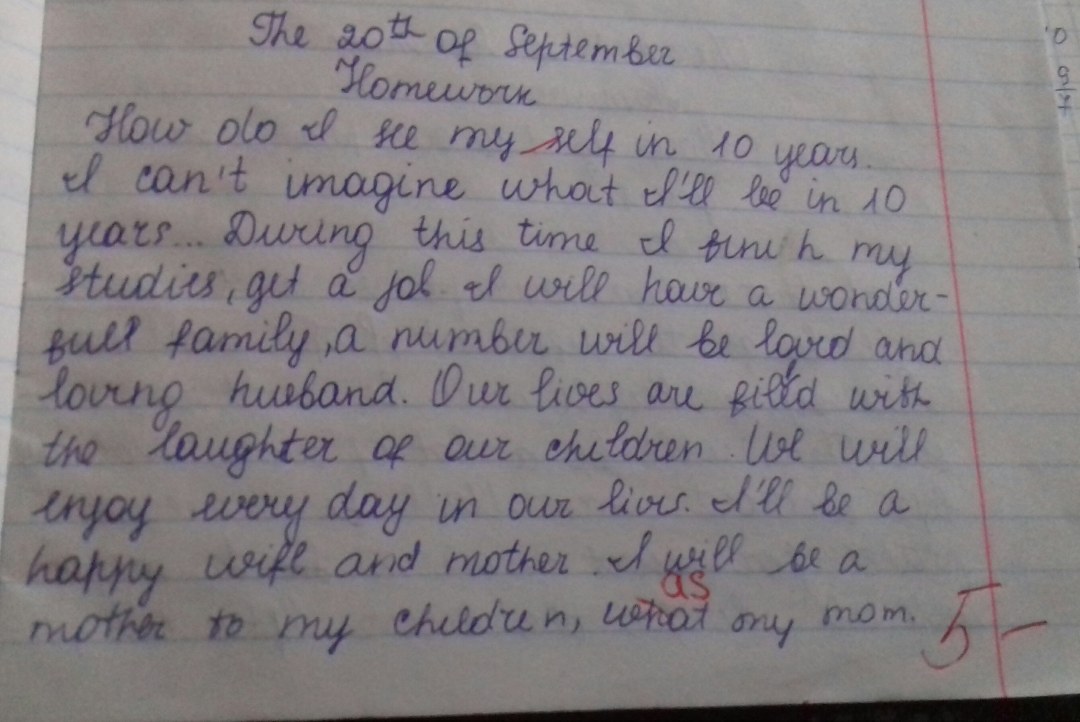 The 20th of September
Homework
How do I see my self in 10 years.
I can't imagine what I'll be in 10
years... During this time I finish my
studies, get a job. I will have a wonder-
full family, a number will be loved and
loving husband. Our lives are filled with
the laughter of our children. We will
enjoy every day in our lives. I'll be a
happy wife and mother. I will be a
as
mother to my children, what my mom.
5-
9
7